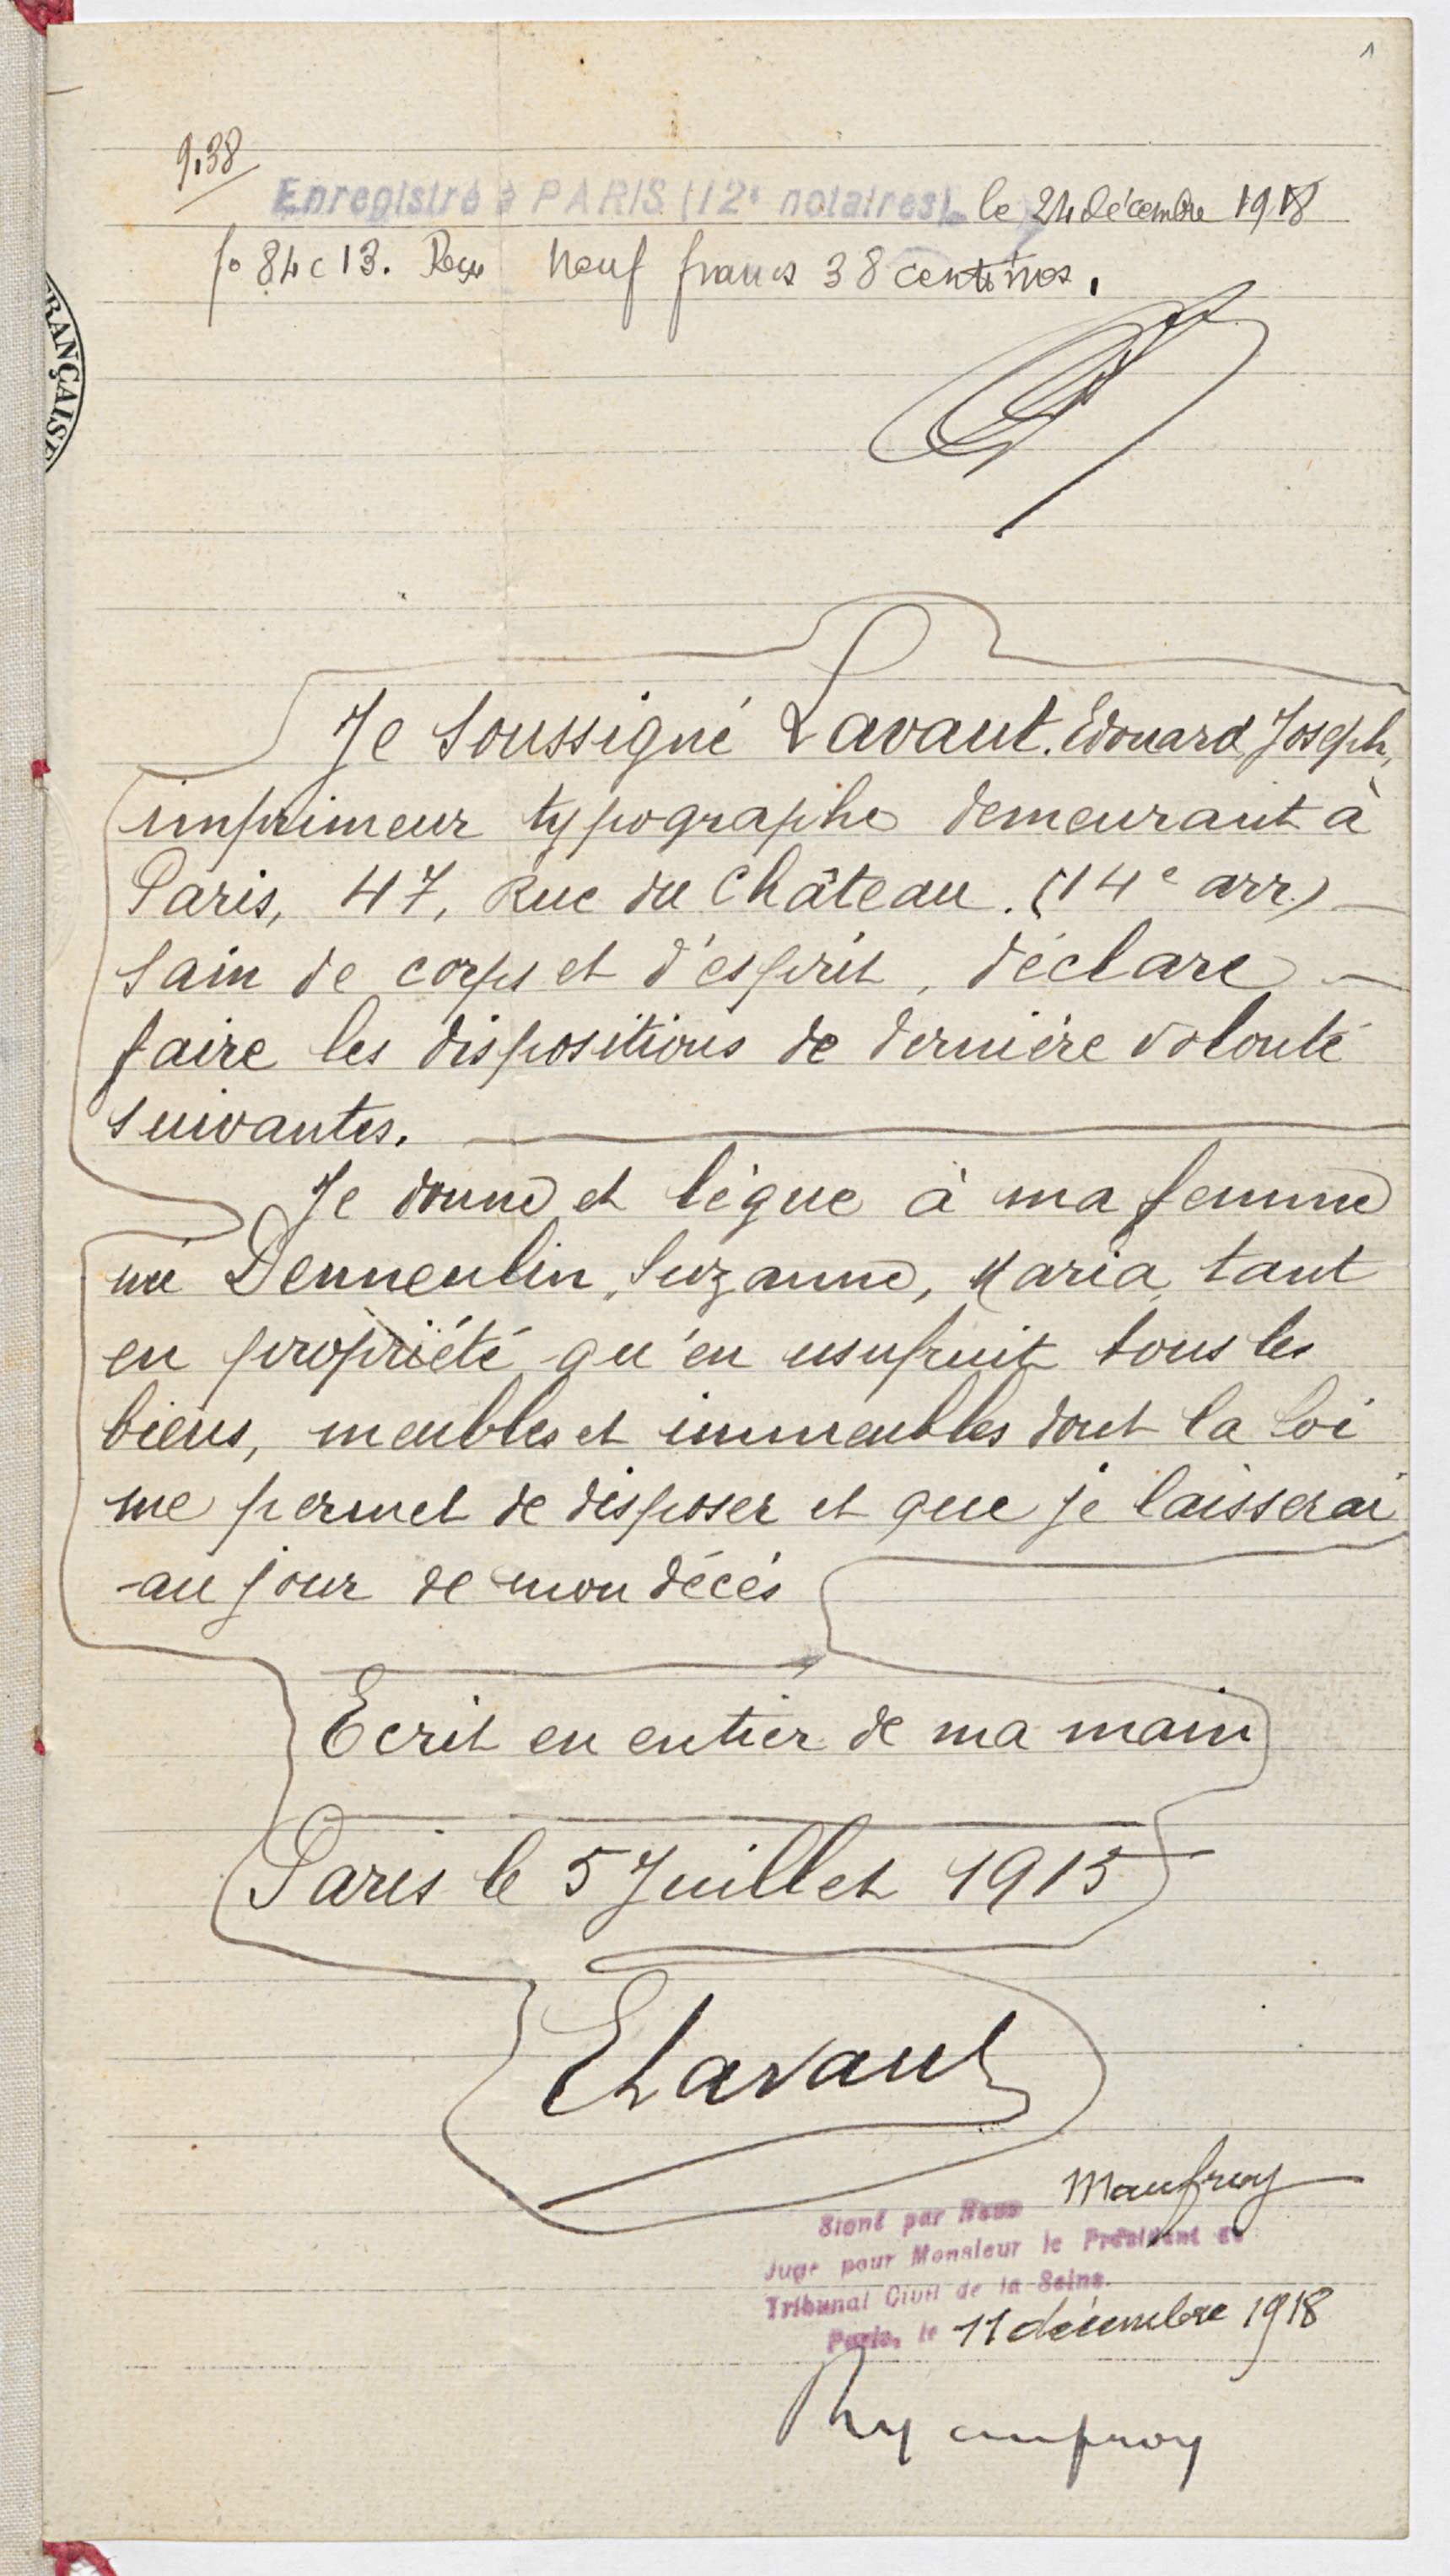 1
9,38
Enregistré à PARIS (12e notaires) le 24 décembre 1918
fo 84 c 13. Reçu neuf francs 38 centimes.
RANÇAISE
Je soussigné Lavaut. Edouard, Joseph,
imprimeur typographe demeurant à
Paris, 47, Rue du Château. (14e arr.)
sain de corps et d'esprit, déclare
faire les dispositions de dernière volonté
suivantes.
Je donne et lègue à ma femme
née Denneulin, Suzanne, Maria, tant
en propriété qu'en usufruit tous les
biens, meubles et immeubles dont la loi
me permet de disposer et que je laisserai
au jour de mon décès
Ecrit en entier de ma main
Paris le 5 Juillet 1915
ELavaut
Maufroy
Signé par Nous
Juge pour Monsieur le Président du
Tribunal Civil de la Seine.
Paris, le 11 décembre 1918